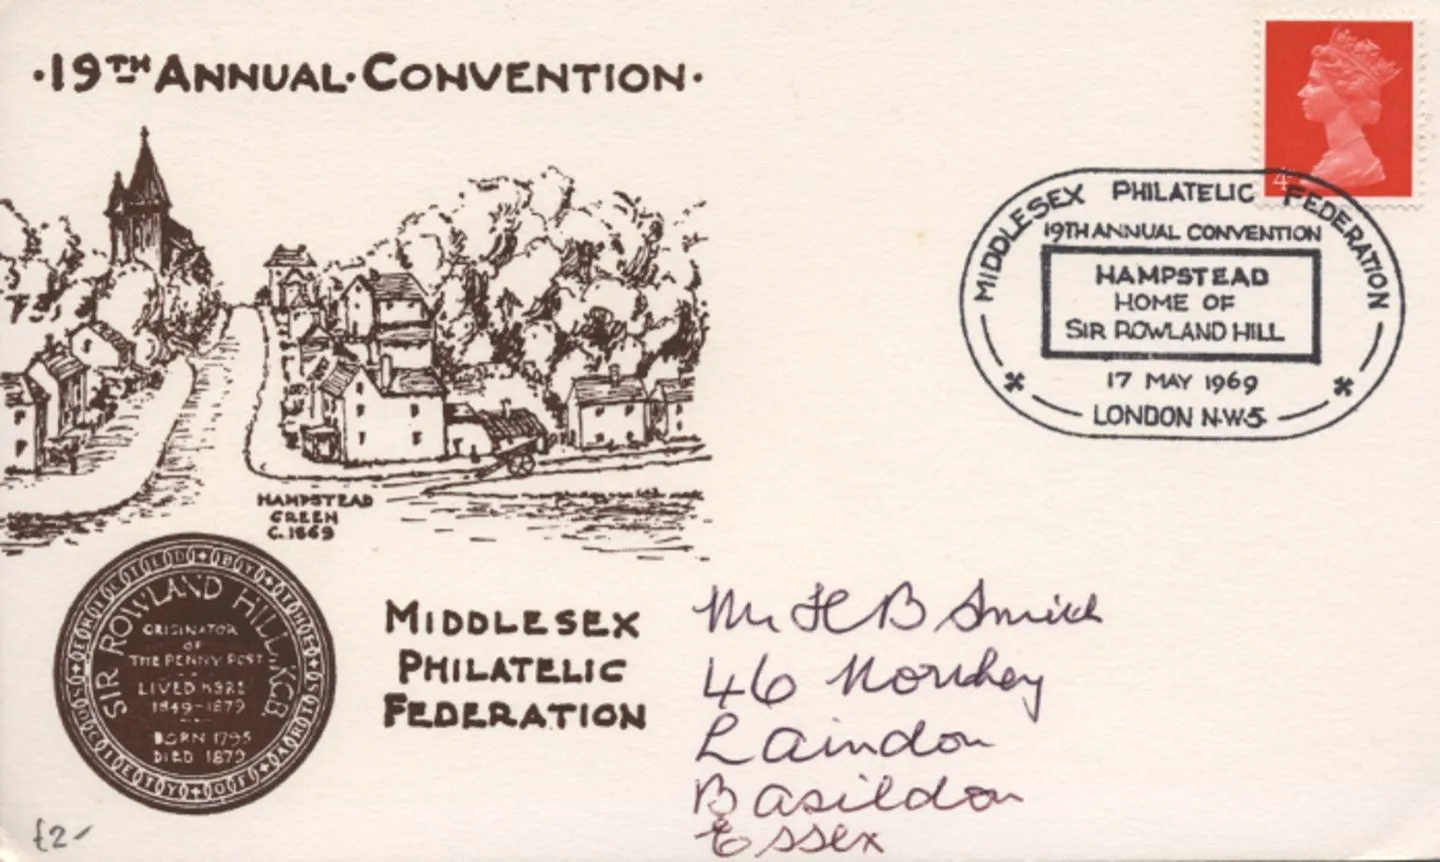 ·19TH ANNUAL·CONVENTION·
4
MIDDLESEX PHILATELIC FEDERATION
19TH ANNUAL CONVENTION
HAMPSTEAD
HOME OF
SIR ROWLAND HILL
17 MAY 1969
LONDON N·W·3·
HAMPSTEAD
GREEN
C. 1869
ERECTED BY THE SOCIETY OF ARTS
SIR ROWLAND HILL, K.C.B.
ORIGINATOR
OF
THE PENNY POST
LIVED HERE
1849-1879
BORN 1795
DIED 1879
MIDDLESEX
PHILATELIC
FEDERATION
Mr H B Smith
46
Laindon
Basildon
Essex
£2-